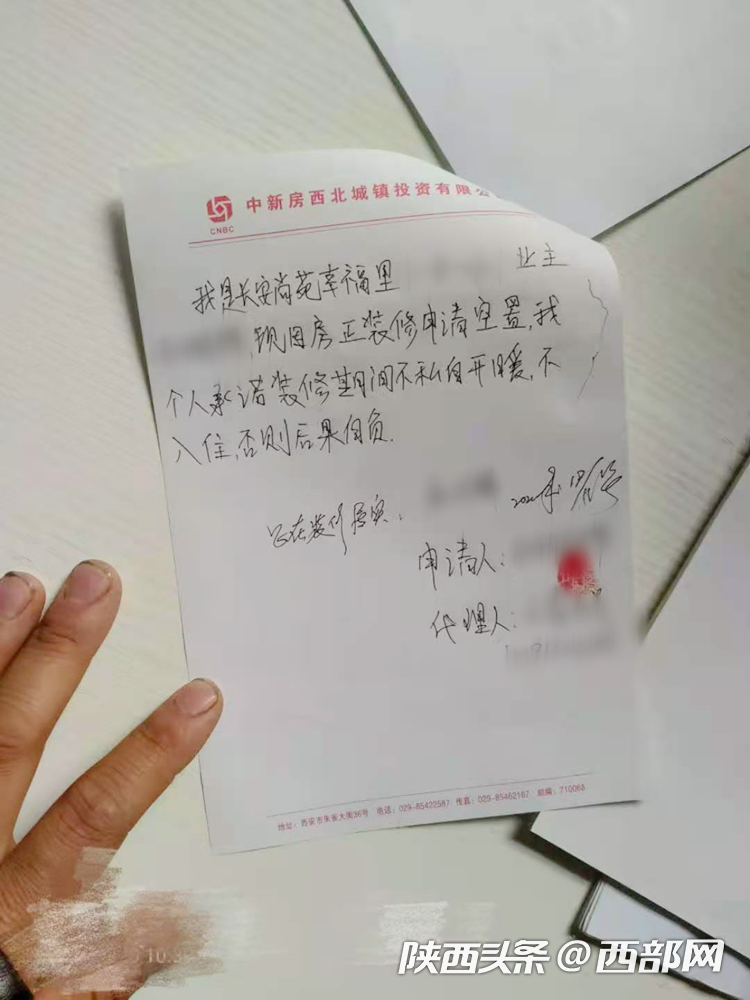 中新房西北城镇投资有限公
CNBC
我是长安尚苑幸福里 业主
现因房正装修申请空置,我
个人承诺装修期间不私自开暖,不
入住,否则后果自负.
正在装修属实.
申请人:
代理人:
地址:西安市朱雀大街36号 电话:029-85422587 传真:029-85462167 邮编:710068
陕西头条@西部网